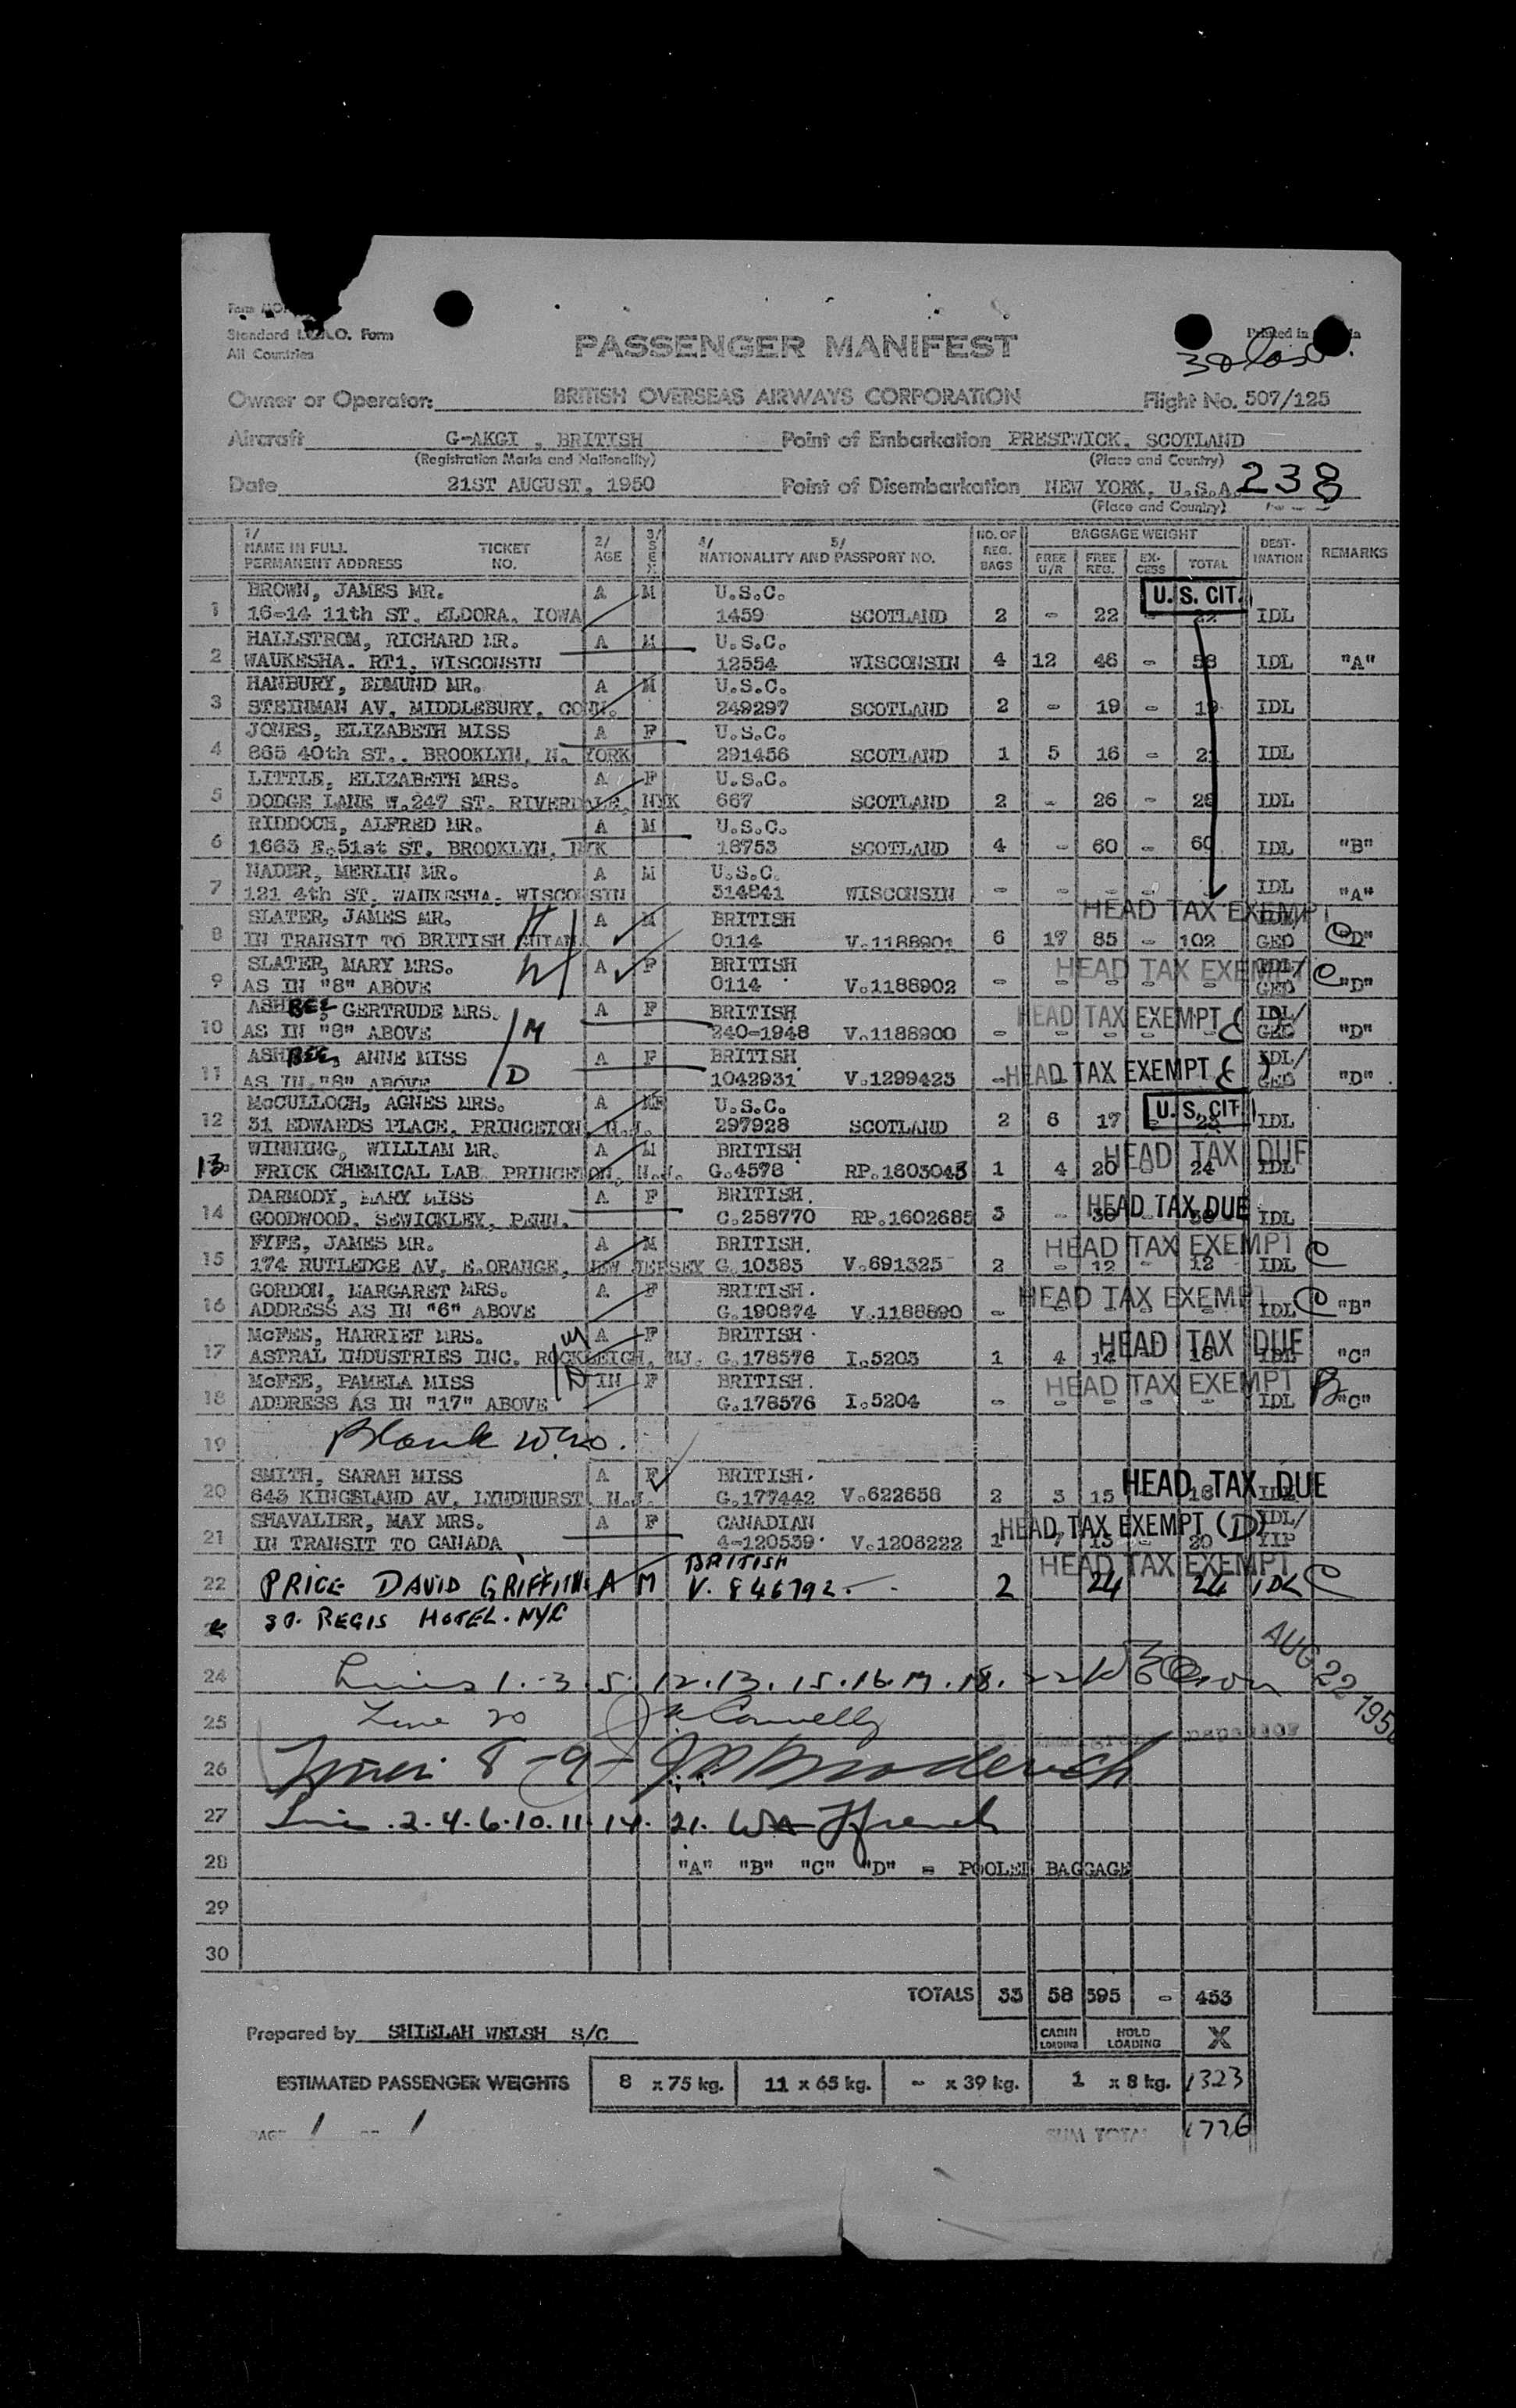 Standard I.C.A.O. Form
All Countries
Printed in
PASSENGER MANIFEST
Owner or Operator: BRITISH OVERSEAS AIRWAYS CORPORATION Flight No. 507/125
Aircraft G-AKGI , BRITISH Point of Embarkation PRESTWICK, SCOTLAND
(Registration Marks and Nationality) (Place and Country)
Date 21ST AUGUST, 1950 Point of Disembarkation NEW YORK, U.S.A. 238
(Place and Country)
1/ NAME IN FULL PERMANENT ADDRESS TICKET NO. 2/ AGE 3/ SEX 4/ 5/ NATIONALITY AND PASSPORT NO. NO. OF REG. BAGS BAGGAGE WEIGHT FREE U/R FREE REG. EXCESS TOTAL DESTINATION REMARKS
BROWN, JAMES MR. A M U.S.C. U.S. CIT.
1 16-14 11th ST. ELDORA, IOWA 1459 SCOTLAND 2 - 22 - 22 IDL
HALLSTROM, RICHARD MR. A M U.S.C.
2 WAUKESHA. RT1, WISCONSIN 12554 WISCONSIN 4 12 46 - 58 IDL "A"
HANBURY, EDMUND MR. A M U.S.C.
3 STEINMAN AV, MIDDLEBURY, CONN. 249297 SCOTLAND 2 - 19 - 19 IDL
JONES, ELIZABETH MISS A F U.S.C.
4 865 40th ST., BROOKLYN, N. YORK 291456 SCOTLAND 1 5 16 - 21 IDL
LITTLE, ELIZABETH MRS. A F U.S.C.
5 DODGE LANE W.247 ST. RIVERDALE, NYK 667 SCOTLAND 2 - 26 - 26 IDL
RIDDOCH, ALFRED MR. A M U.S.C.
6 1663 E.51st ST. BROOKLYN, NYK 18753 SCOTLAND 4 - 60 - 60 IDL "B"
NADER, MERLIN MR. A M U.S.C.
7 121 4th ST, WAUKESHA, WISCONSIN 314841 WISCONSIN - - - - - IDL "A"
SLATER, JAMES MR. H A M BRITISH HEAD TAX EXEMPT IDL/
8 IN TRANSIT TO BRITISH GUIANA 0114 V.1188901 6 17 85 - 102 GEO C "D"
SLATER, MARY MRS. W A F BRITISH HEAD TAX EXEMPT IDL/ C
9 AS IN "8" ABOVE 0114 V.1188902 - - - - - GEO "D"
ASHBEE, GERTRUDE MRS. A F BRITISH HEAD TAX EXEMPT ( ) IDL/
10 AS IN "8" ABOVE M 240-1948 V.1188900 - - - - - GEO "D"
ASHBEE, ANNE MISS A F BRITISH HEAD TAX EXEMPT ( ) IDL/
11 AS IN "8" ABOVE D 1042931 V.1299423 - - GEO "D"
McCULLOCH, AGNES MRS. A F U.S.C. U.S. CIT.
12 31 EDWARDS PLACE, PRINCETON, N.J. 297928 SCOTLAND 2 6 17 - 23 IDL
WINNING, WILLIAM MR. A M BRITISH HEAD TAX DUE
13 FRICK CHEMICAL LAB. PRINCETON, N.J. G.4578 RP.1603043 1 4 20 - 24 IDL
DARMODY, MARY MISS A F BRITISH. HEAD TAX DUE
14 GOODWOOD, SEWICKLEY, PENN. C.258770 RP.1602685 3 - IDL
FYFE, JAMES MR. A M BRITISH. HEAD TAX EXEMPT C
15 174 RUTLEDGE AV, E.ORANGE, NEW JERSEY G.10383 V.691325 2 - 12 - 12 IDL
GORDON, MARGARET MRS. A F BRITISH. HEAD TAX EXEMPT C
16 ADDRESS AS IN "6" ABOVE G.190874 V.1188890 - - - - - IDL "B"
McFEE, HARRIET MRS. A F BRITISH. HEAD TAX DUE
17 ASTRAL INDUSTRIES INC. ROCKLEIGH, NJ. G.178576 I.5203 1 4 14 18 IDL "C"
McFEE, PAMELA MISS D IN F BRITISH. HEAD TAX EXEMPT B
18 ADDRESS AS IN "17" ABOVE G.178576 I.5204 - - - - - IDL "C"
19 Blank
SMITH, SARAH MISS A F BRITISH. HEAD TAX DUE
20 643 KINGSLAND AV, LYNDHURST, N.J. G.177442 V.622658 2 3 15 18 IDL
SHAVALIER, MAY MRS. A F CANADIAN HEAD TAX EXEMPT (D) IDL/
21 IN TRANSIT TO CANADA 4-120539 V.1208222 1 7 13 - 20 YIP
BRITISH HEAD TAX EXEMPT
22 PRICE DAVID GRIFFITHS A M V. 846792. 2 24 24 IDL C
ST. REGIS HOTEL. NYC
AUG 22 1950
24 Lines 1. 3. 5. 12. 13. 15. 16. 17. 18. 22
25 Line 20 Connelly
26 Lines 8-9- Broderick
27 Lines. 2. 4. 6. 10. 11. 14. 21. Ffrench
28 "A" "B" "C" "D" = POOLED BAGGAGE
29
30
TOTALS 33 58 395 - 453
Prepared by SHIELAH WELSH S/C CABIN LOADING HOLD LOADING X
ESTIMATED PASSENGER WEIGHTS 8 x 75 kg. 11 x 65 kg. - x 39 kg. 1 x 8 kg. 1323
PAGE 1 OF 1 SUM TOTAL 1776